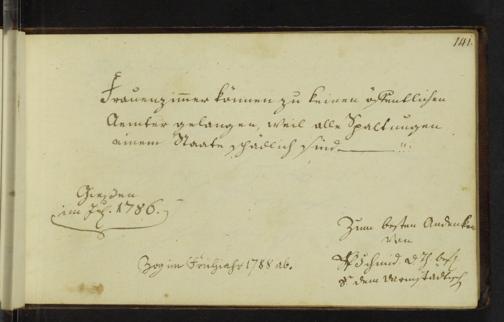 141.
Frauenzimmer können zu keinen öffentlichen
Aemter gelangen, weil alle Spaltungen
einem Staate schädlich sind.
Giesen
im Jul. 1786.
Zum besten Andenken
von
Schmid. d. Th. bef.
a. dem Darmstädtisch
Zog im Frühjahr 1788 ab.